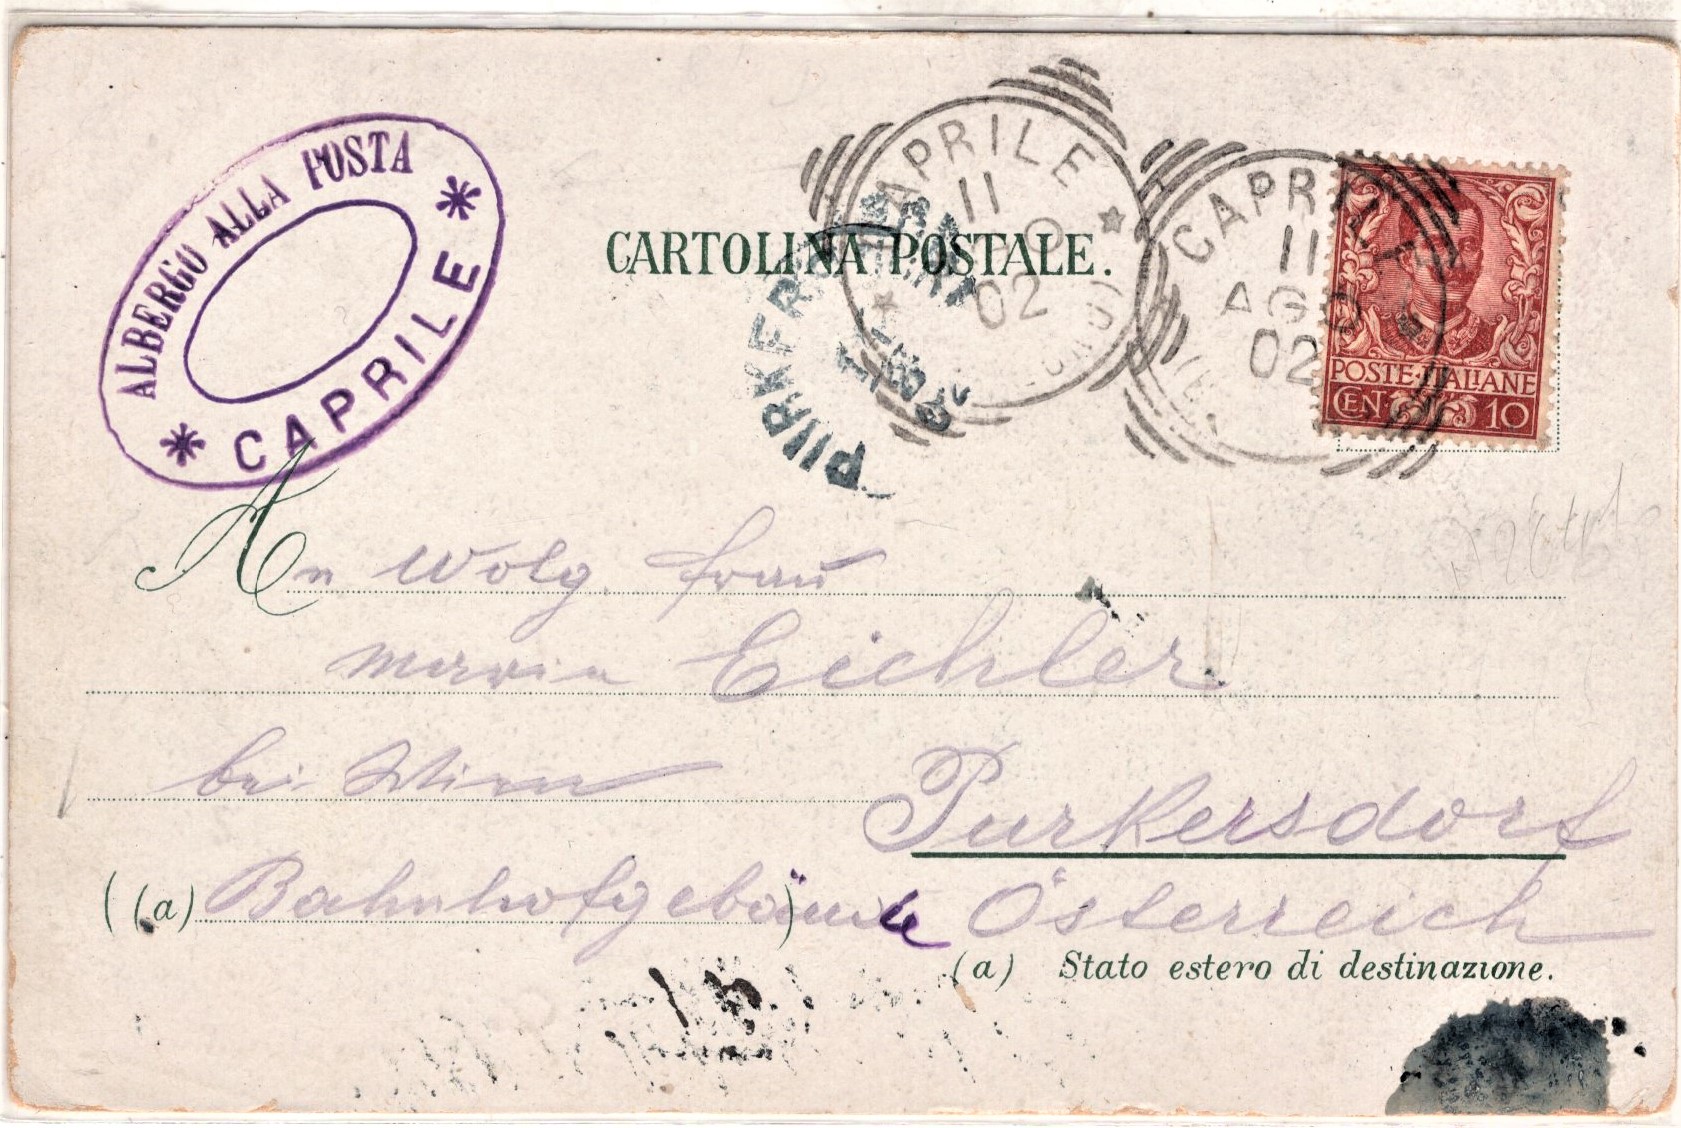 ALBERGO ALLA POSTA
* CAPRILE *
CARTOLINA POSTALE.
CAPRILE
11
02
CAPRILE
11
AGO
02
PURKERSDORF
POSTE·ITALIANE
CEN 10
An Wolg. Frau
Maria Eichler
bei Wien Purkersdorf
(a) Bahnhofgebäude Österreich
(a) Stato estero di destinazione.